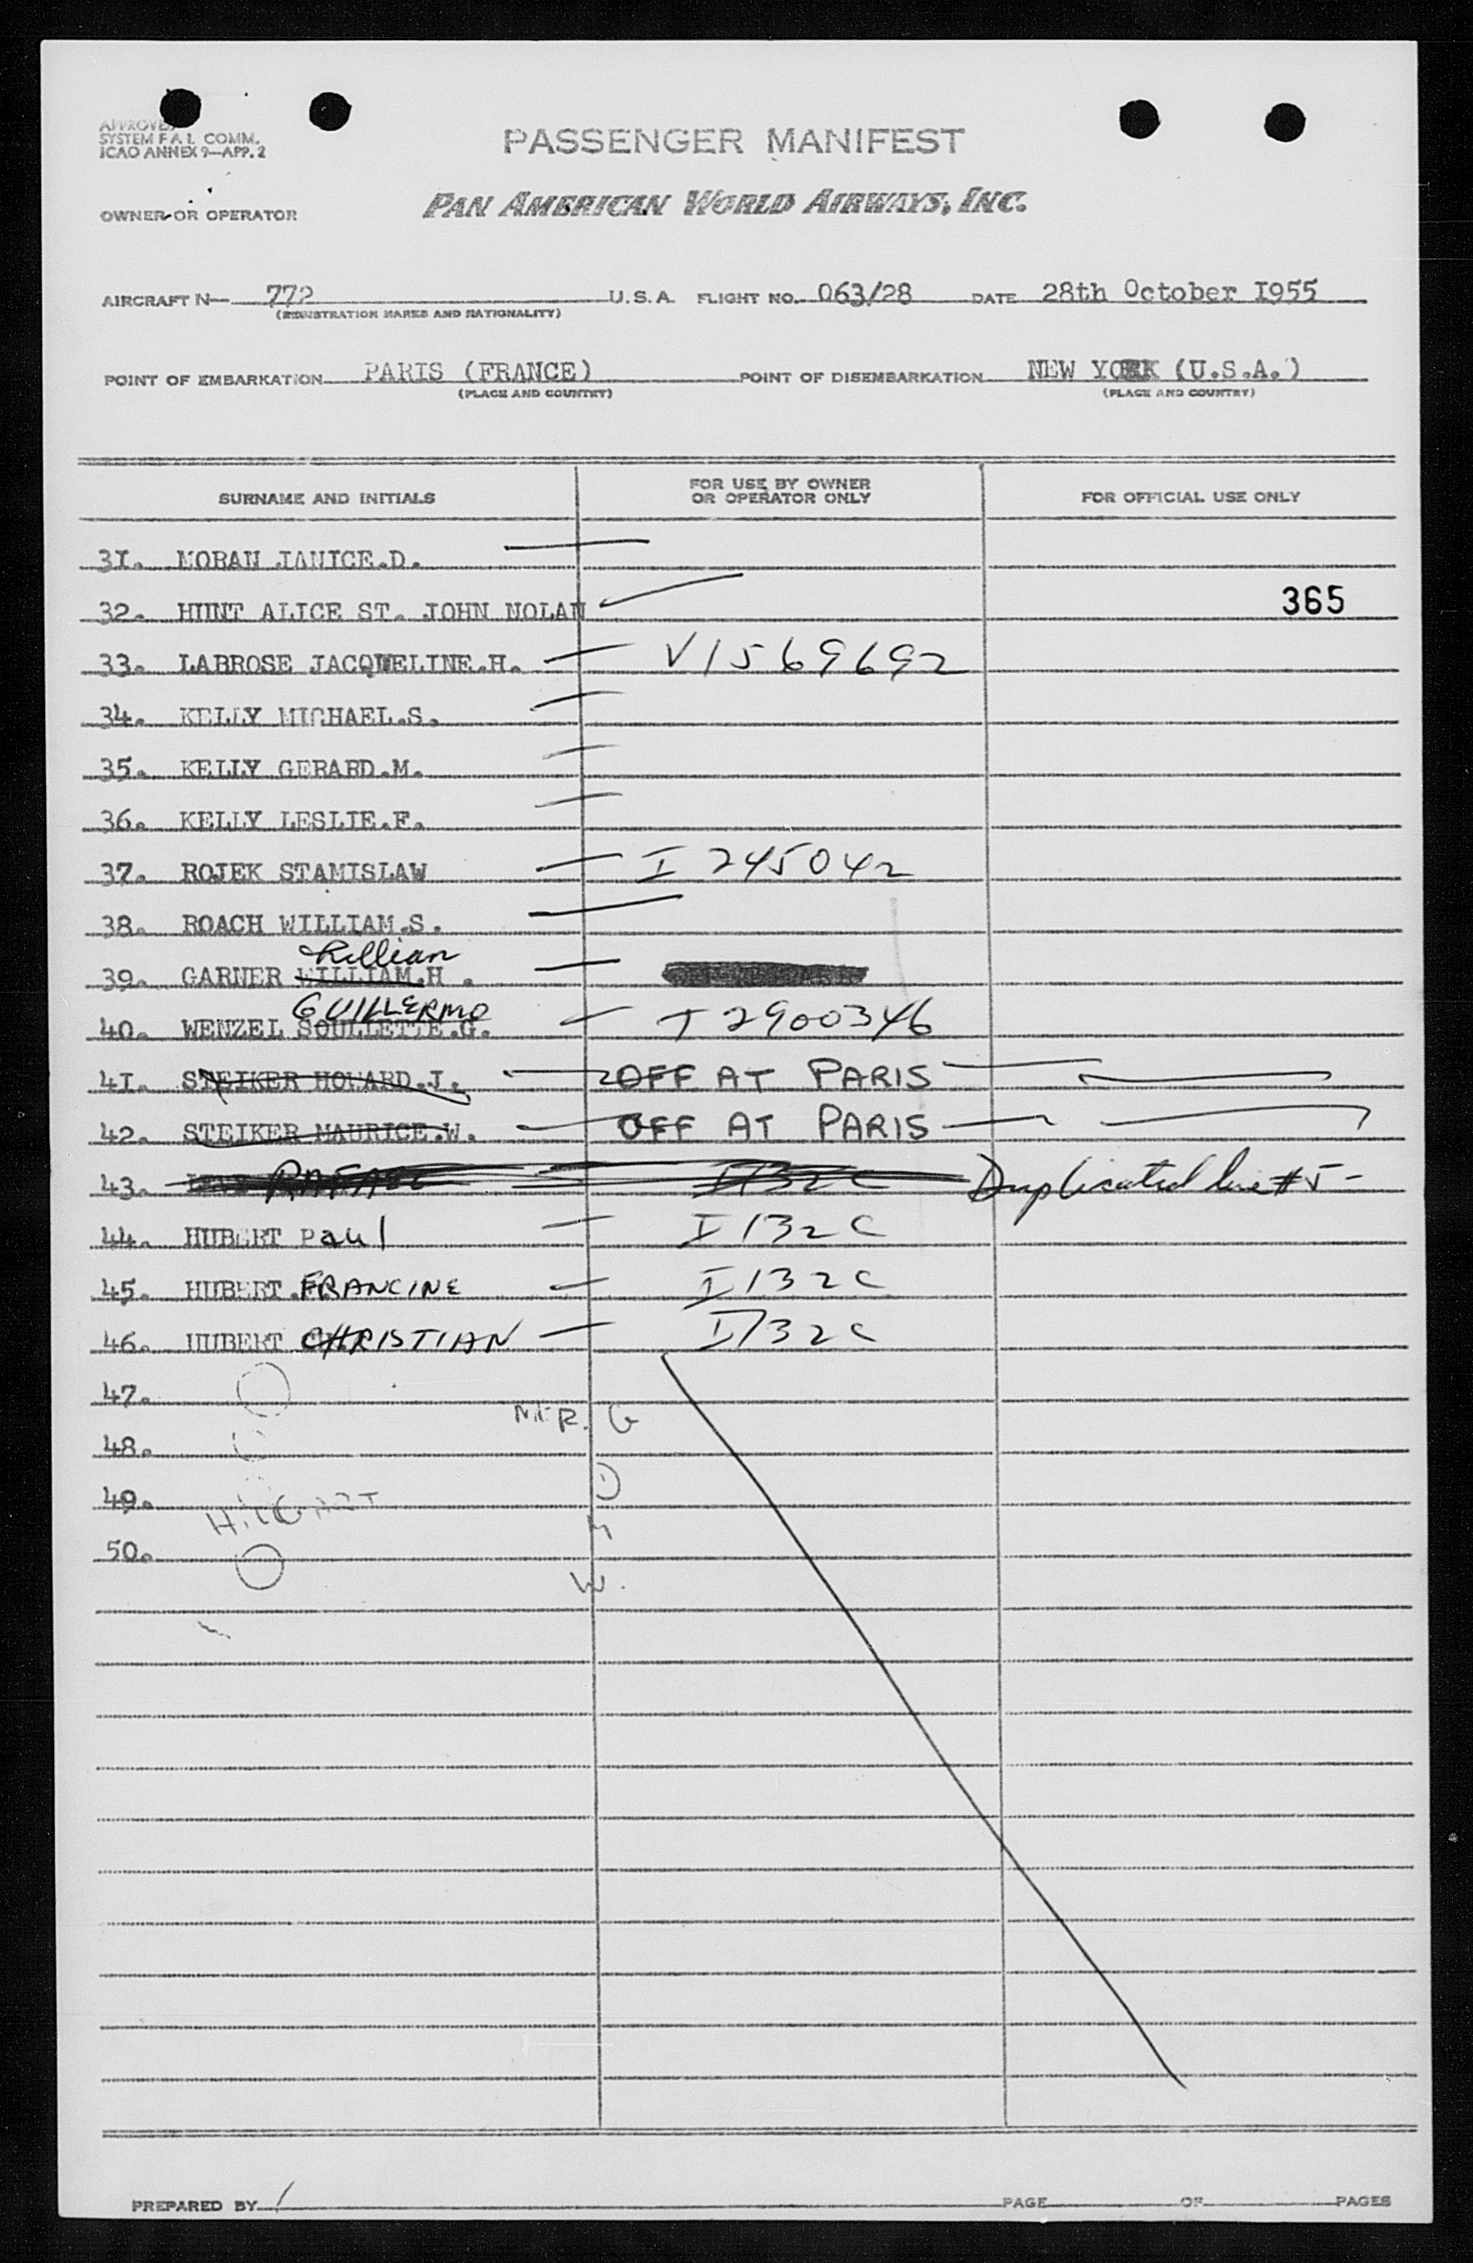 APPROVED
SYSTEM F.A.L. COMM.
ICAO ANNEX 9—APP. 2
PASSENGER MANIFEST
OWNER OR OPERATOR
PAN AMERICAN WORLD AIRWAYS, INC.
AIRCRAFT N— 772 U.S.A. FLIGHT NO. 063/28 DATE 28th October I955
(REGISTRATION MARKS AND NATIONALITY)
POINT OF EMBARKATION PARIS (FRANCE) POINT OF DISEMBARKATION NEW YORK (U.S.A.)
(PLACE AND COUNTRY) (PLACE AND COUNTRY)
SURNAME AND INITIALS FOR USE BY OWNER OR OPERATOR ONLY FOR OFFICIAL USE ONLY
3I. MORAN JANICE.D.
32. HUNT ALICE ST. JOHN NOLAN 365
33. LABROSE JACQUELINE.H. V1569692
34. KELLY MICHAEL.S.
35. KELLY GERARD.M.
36. KELLY LESLIE.F.
37. ROJEK STANISLAW I 245042
38. ROACH WILLIAM.S.
Lillian
39. GARNER WILLIAM.H.
GUILLERMO
40. WENZEL SOULLETTE.G. T 2900346
4I. STEIKER HOWARD.J. OFF AT PARIS
42. STEIKER MAURICE.W. OFF AT PARIS
43. RAFAEL I132C Duplicated line #5-
44. HUBERT Paul I 132C
45. HUBERT FRANCINE I132C
46. HUBERT CHRISTIAN I132C
47.
MER. G
48.
49. D
50.
W.
PREPARED BY PAGE OF PAGES